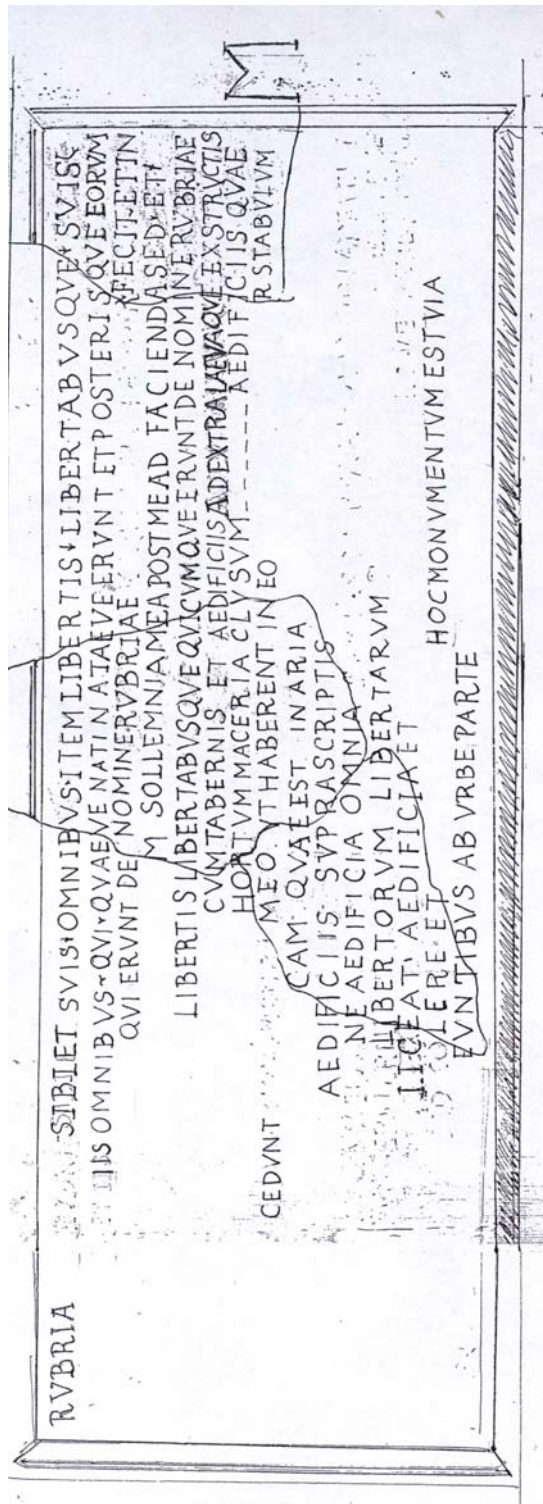 RVBRIA SIBIET SVIS OMNIBVS ITEM LIBERTIS LIBERTABVSQVE SVISQ
IIS OMNIBVS QVI QVAEVE NATIN ATAEVE ERVNT ET POSTERISQVE EORVM
QVI ERVNT DE NOMINERVBRIAE FECIT ET IN
M SOLLEMNIA MEA POST MEAD FACIENDA SED ET
LIBERTIS LIBERTABVSQVE QVICVMQVE ERVNT DE NOMINE RVBRIAE
CVM TABERNIS ET AEDIFICIIS ADEXTRA LAEVAQVE EXSTRVCTIS
HORTVM MACERIA CLVSVM ----- AEDIFICIIS QVAE
CEDVNT MEO VT HABERENT IN EO R STABVLVM
CAM QVAE EST IN ARIA
AEDIFICIIS SVPRASCRIPTIS
NE AEDIFICIA OMNIA
LIBERTORVM LIBERTARVM
AEDIFICIA ET
LERE ET HOC MONVMENTVM EST VIA
EVNTIBVS AB VRBE PARTE
M